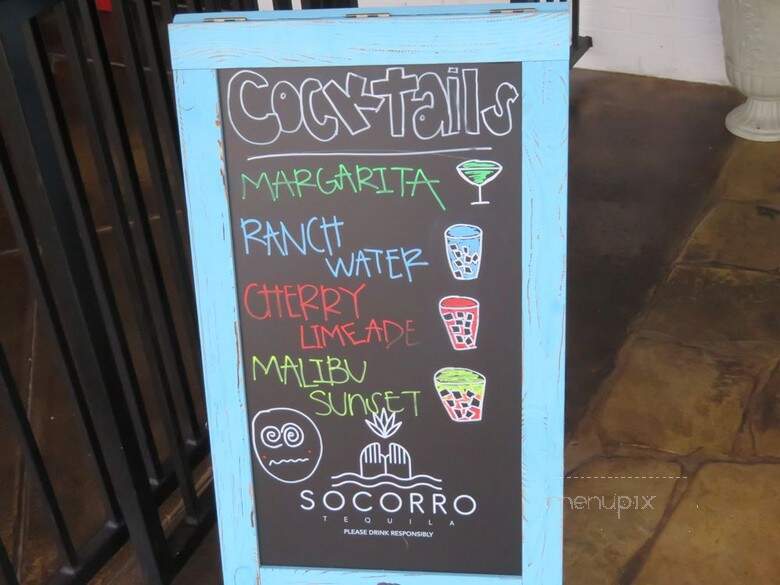 Cocktails
MARGARITA
RANCH
WATER
CHERRY
LIMEADE
MALIBU
SUNSET
SOCORRO
TEQUILA
PLEASE DRINK RESPONSIBLY
menupix